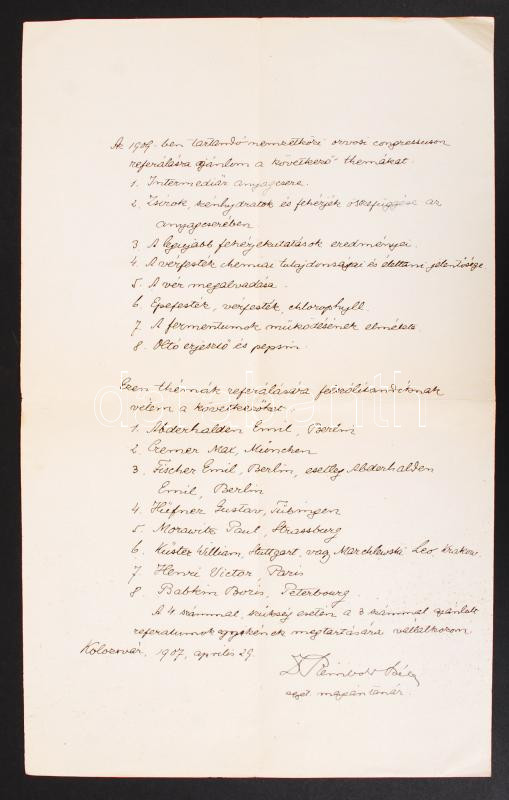 Az 1909-ben tartandó nemzetközi orvosi congressuson
referálásra ajánlom a következő themákat.
1. Intermediär anyagcsere.
2. Zsírok, szénhydratok és fehérjék összefüggése az
anyagcserében.
3 A legujabb fehérjekutatások eredményei.
4. A vérfesték chemiai tulajdonságai és élettani jelentősége
5. A vér megalvadása.
6. Epefesték, vérfesték, chlorophyll.
7. A fermentumok működésének elmélete.
8. Oltó erjesztő és pepsin.
Ezen thémák referálására felszólítandóknak
vélem a következőket:
1. Abderhalden Emil, Berlin
2. Cremer Max, München
3. Fischer Emil, Berlin, esetleg Abderhalden
Emil, Berlin
4. Hüfner Gustav, Tübingen
5. Morawitz Paul, Strassburg
6. Küster William, Stuttgart, vagy Marchlewski Leo, Krakau.
7 Henri Victor, Paris
8. Babkin Boris, Péterbourg.
A 4 számmal, szükség esetén a 3 számmal ajánlott
referatumok egyikének megtartására vállalkozom.
Kolozsvár, 1907, április 29.
Dr Reinbold Béla
egyet. magántanár.
darabanth